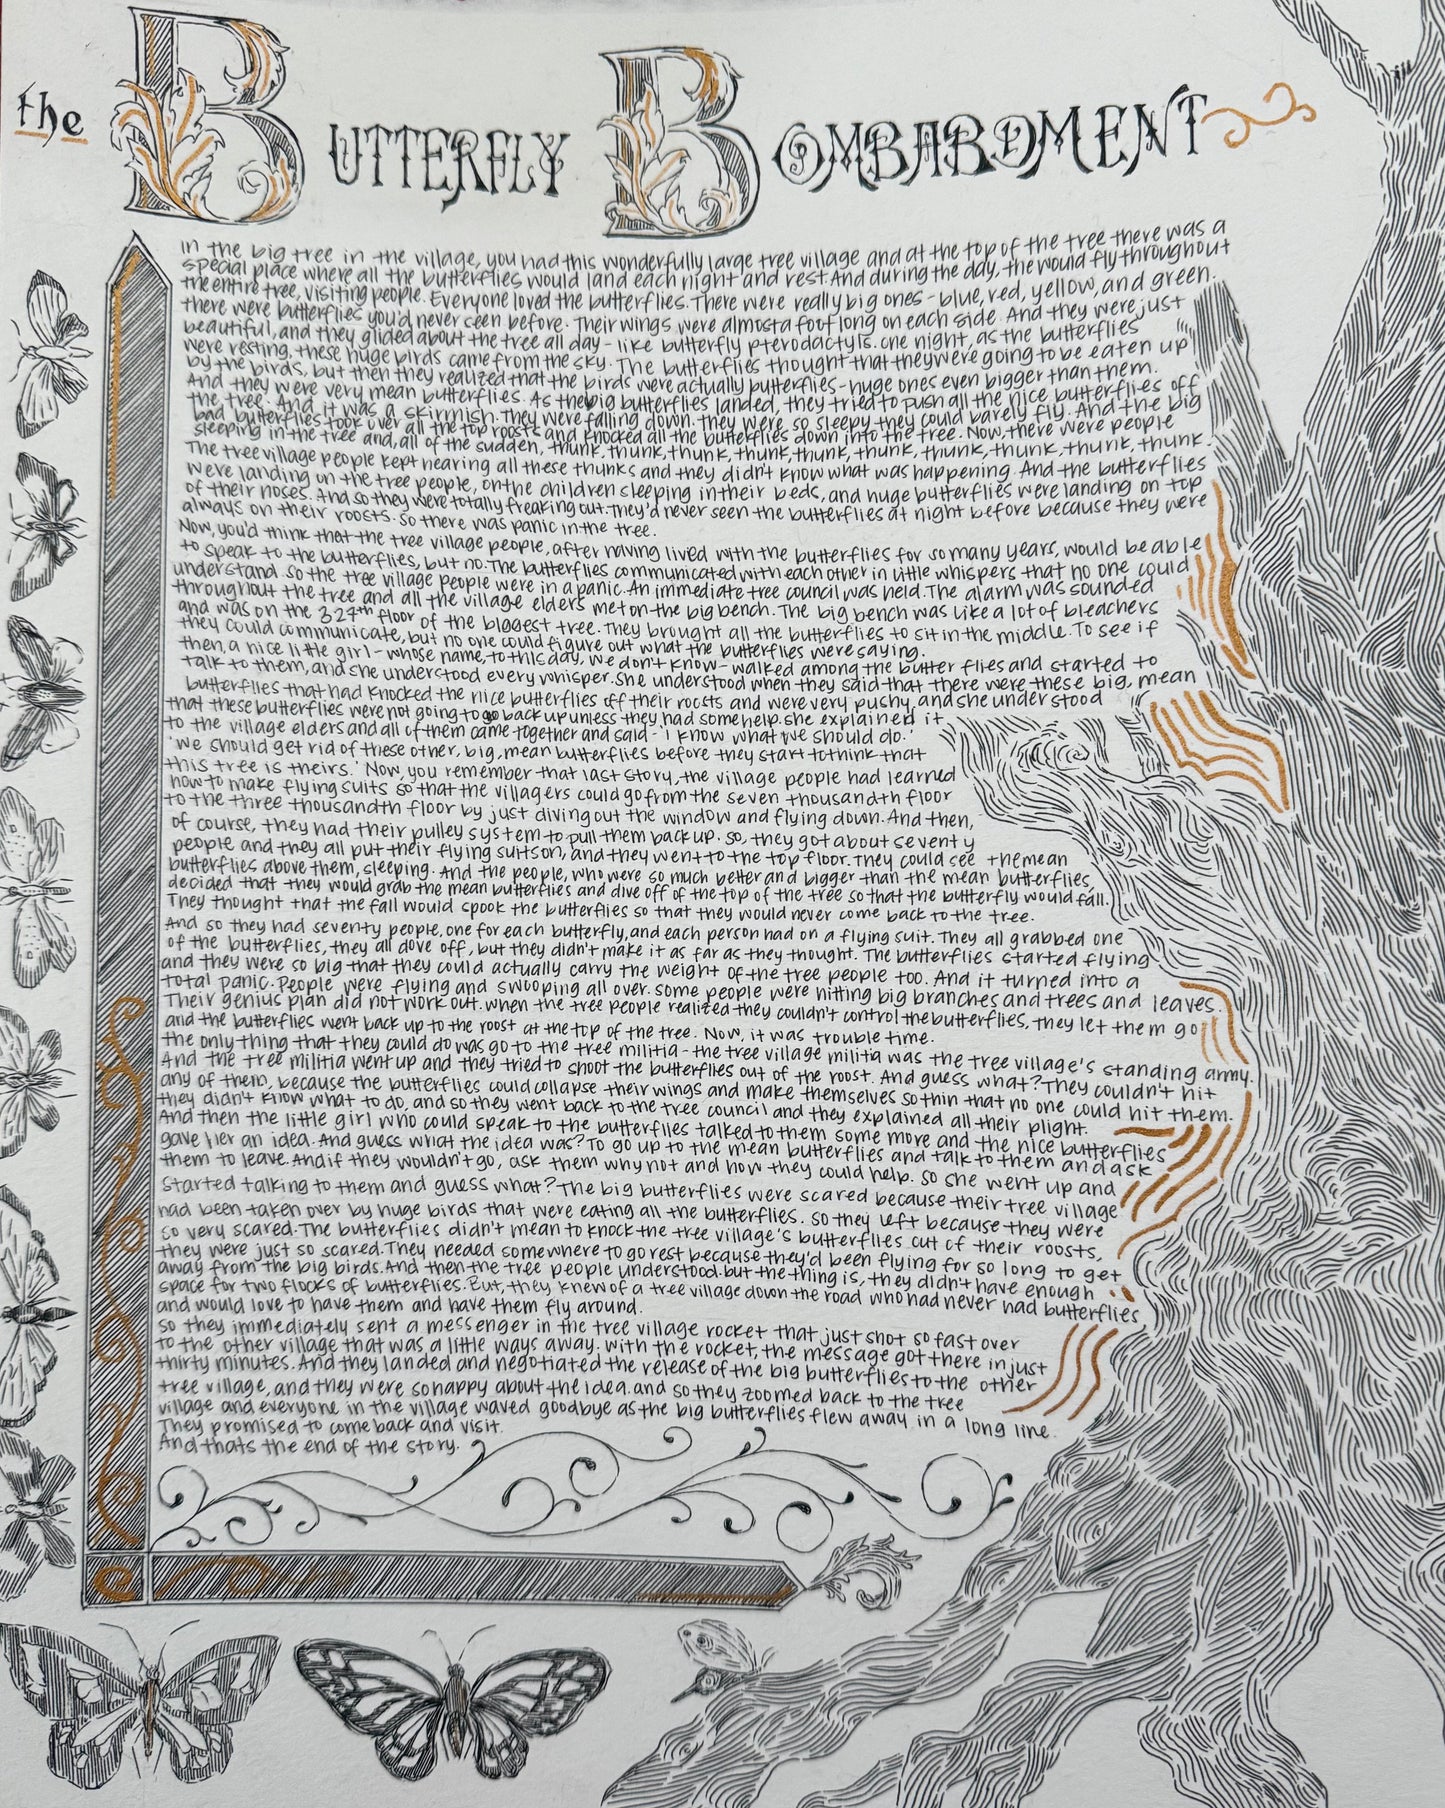 the Butterfly Bombardment
In the big tree in the village, you had this wonderfully large tree village and at the top of the tree there was a
special place where all the butterflies would land each night and rest. And during the day, the would fly throughout
the entire tree, visiting people. Everyone loved the butterflies. There were really big ones - blue, red, yellow, and green.
there were butterflies you'd never seen before. Their wings were almost a foot long on each side. And they were just
beautiful, and they glided about the tree all day - like butterfly pterodactyls. One night, as the butterflies
were resting, these huge birds came from the sky. The butterflies thought that they were going to be eaten up
by the birds, but then they realized that the birds were actually butterflies - huge ones even bigger than them.
And they were very mean butterflies. As the big butterflies landed, they tried to push all the nice butterflies off
the tree. And it was a skirmish. They were falling down. they were so sleepy they could barely fly. And the big
bad butterflies took over all the top roosts and knocked all the butterflies down into the tree. Now, there were people
sleeping in the tree and, all of the sudden, thunk, thunk, thunk, thunk, thunk, thunk, thunk, thunk, thunk, thunk.
The tree village people kept hearing all these thunks and they didn't know what was happening. And the butterflies
were landing on the tree people, on the children sleeping in their beds, and huge butterflies were landing on top
of their noses. And so they were totally freaking out. They'd never seen the butterflies at night before because they were
always on their roosts. So there was panic in the tree.
Now, you'd think that the tree village people, after having lived with the butterflies for so many years, would be able
to speak to the butterflies, but no. The butterflies communicated with each other in little whispers that no one could
understand. So the tree village people were in a panic. An immediate tree council was held. The alarm was sounded
throughout the tree and all the village elders met on the big bench. The big bench was like a lot of bleachers
and was on the 329th floor of the biggest tree. They brought all the butterflies to sit in the middle. To see if
they could communicate, but no one could figure out what the butterflies were saying.
then, a nice little girl - whose name, to this day, we don't know - walked among the butterflies and started to
talk to them, and she understood every whisper. She understood when they said that there were these big, mean
butterflies that had knocked the nice butterflies off their roosts and were very pushy, and she understood
that these butterflies were not going to go back up unless they had some help. She explained it
to the village elders and all of them came together and said - 'I know what we should do.'
'We should get rid of these other, big, mean butterflies before they start to think that
this tree is theirs.' Now, you remember that last story, the village people had learned
how to make flying suits so that the villagers could go from the seven thousandth floor
to the three thousandth floor by just diving out the window and flying down. And then,
of course, they had their pulley system to pull them back up. So, they got about seventy
people and they all put their flying suits on, and they went to the top floor. They could see the mean
butterflies above them, sleeping. And the people, who were so much better and bigger than the mean butterflies,
decided that they would grab the mean butterflies and dive off of the top of the tree so that the butterfly would fall.
They thought that the fall would spook the butterflies so that they would never come back to the tree.
And so they had seventy people, one for each butterfly, and each person had on a flying suit. They all grabbed one
of the butterflies, they all dove off, but they didn't make it as far as they thought. The butterflies started flying
and they were so big that they could actually carry the weight of the tree people too. And it turned into a
total panic. People were flying and swooping all over. Some people were hitting big branches and trees and leaves.
Their genius plan did not work out. When the tree people realized they couldn't control the butterflies, they let them go
and the butterflies went back up to the roost at the top of the tree. Now, it was trouble time.
the only thing that they could do was go to the tree militia - the tree village militia was the tree village's standing army.
And the tree militia went up and they tried to shoot the butterflies out of the roost. And guess what? They couldn't hit
any of them, because the butterflies could collapse their wings and make themselves so thin that no one could hit them.
they didn't know what to do, and so they went back to the tree council and they explained all their plight.
And then the little girl who could speak to the butterflies talked to them some more and the nice butterflies
gave her an idea. And guess what the idea was? To go up to the mean butterflies and talk to them and ask
them to leave. And if they wouldn't go, ask them why not and how they could help. So she went up and
started talking to them and guess what? The big butterflies were scared because their tree village
had been taken over by huge birds that were eating all the butterflies. So they left because they were
so very scared. The butterflies didn't mean to knock the tree village's butterflies out of their roosts,
they were just so scared. They needed somewhere to go rest because they'd been flying for so long to get
away from the big birds. And then the tree people understood. but the thing is, they didn't have enough
space for two flocks of butterflies. But, they knew of a tree village down the road who had never had butterflies
and would love to have them and have them fly around.
So they immediately sent a messenger in the tree village rocket that just shot so fast over
to the other village that was a little ways away. With the rocket, the message got there in just
thirty minutes. And they landed and negotiated the release of the big butterflies to the other
tree village, and they were so happy about the idea. and so they zoomed back to the tree
village and everyone in the village waved goodbye as the big butterflies flew away in a long line.
They promised to come back and visit.
And thats the end of the story.